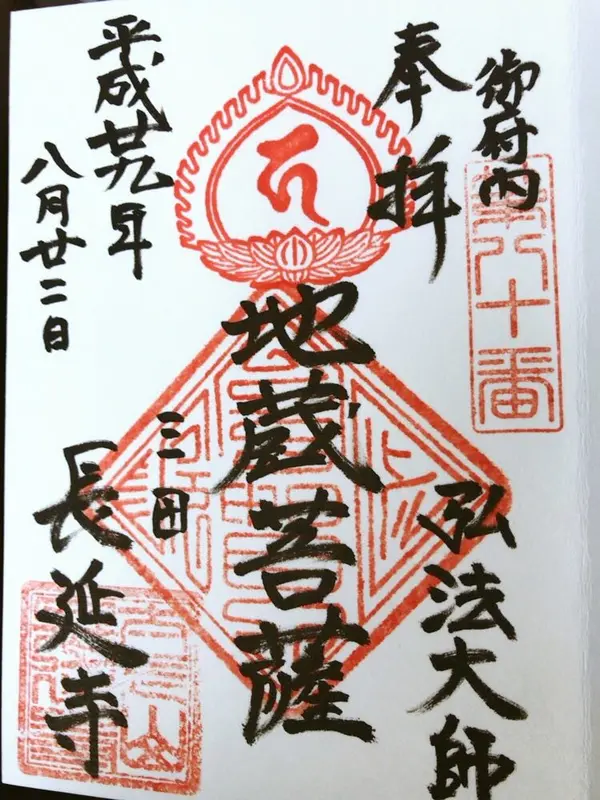 御府内
第八十番
奉拝
弘法大師
地蔵菩薩
三田
長延寺
平成廿九年
八月廿二日